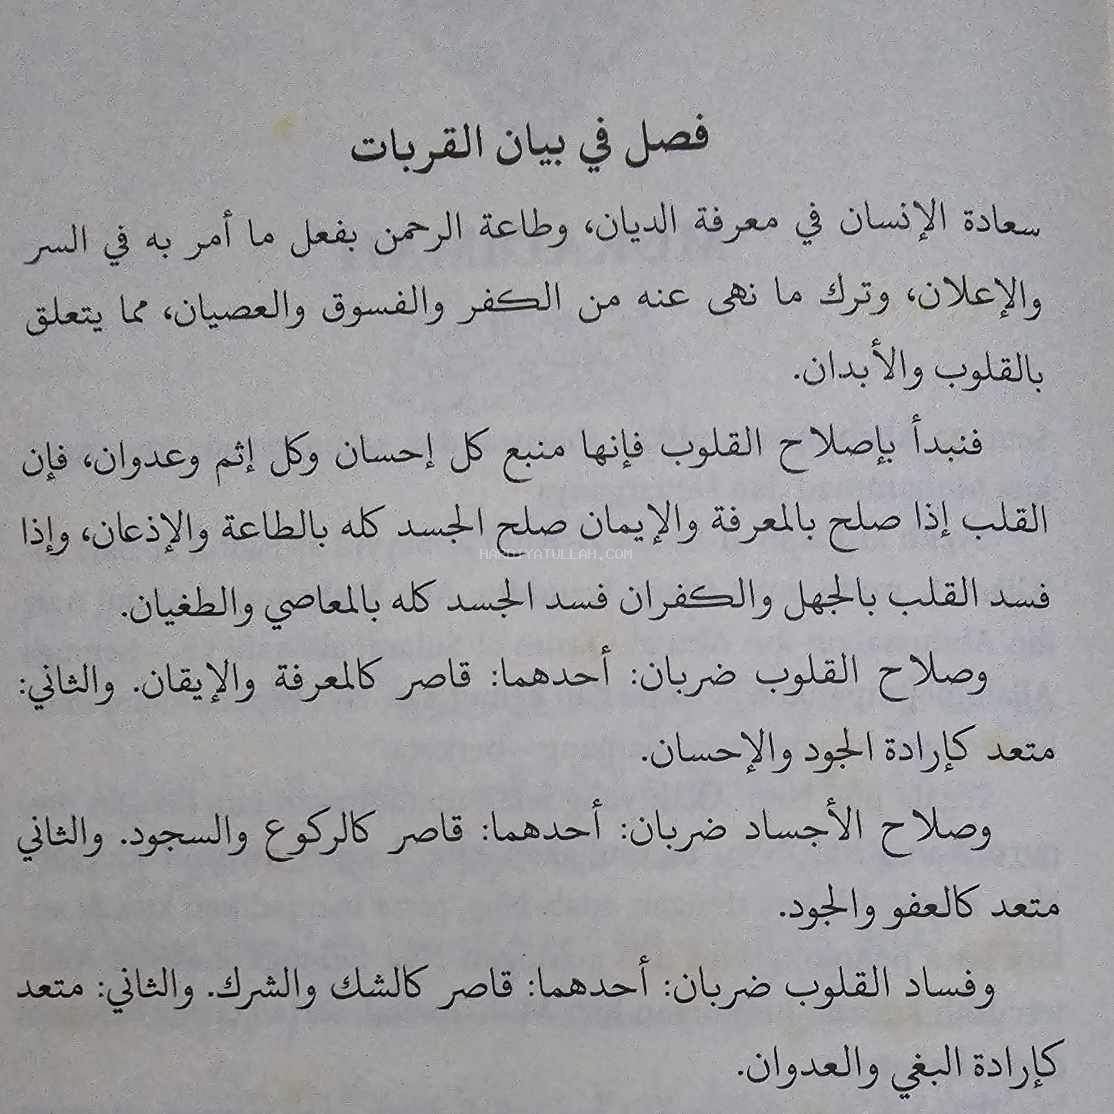 فصل في بيان القربات
سعادة الإنسان في معرفة الديان، وطاعة الرحمن بفعل ما أمر به في السر
والإعلان، وترك ما نهى عنه من الكفر والفسوق والعصيان، مما يتعلق
بالقلوب والأبدان.
فنبدأ بإصلاح القلوب فإنها منبع كل إحسان وكل إثم وعدوان، فإن
القلب إذا صلح بالمعرفة والإيمان صلح الجسد كله بالطاعة والإذعان، وإذا
HADIYATULLAH.COM
فسد القلب بالجهل والكفران فسد الجسد كله بالمعاصي والطغيان.
وصلاح القلوب ضربان: أحدهما: قاصر كالمعرفة والإيقان. والثاني:
متعد كإرادة الجود والإحسان.
وصلاح الأجساد ضربان: أحدهما: قاصر كالركوع والسجود. والثاني
متعد كالعفو والجود.
وفساد القلوب ضربان: أحدهما: قاصر كالشك والشرك. والثاني: متعد
كإرادة البغي والعدوان.